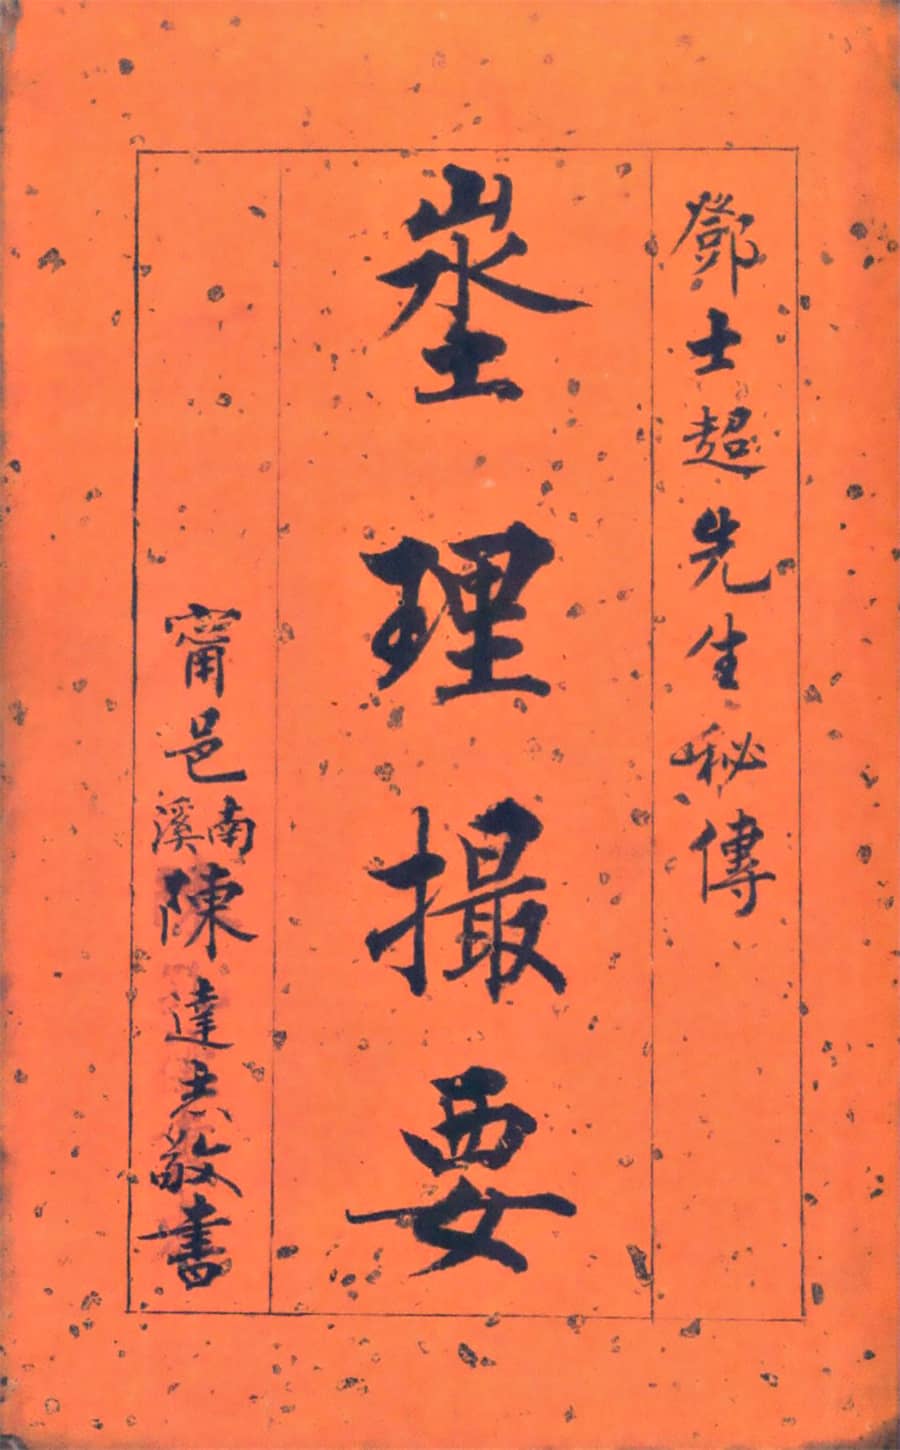 鄧士超先生秘傳
埊理撮要
甯邑南溪陳達志敬書